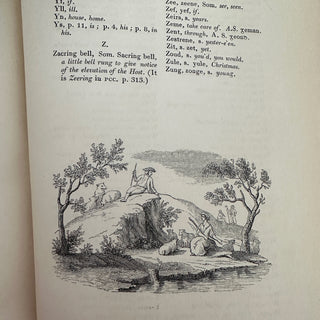 Yf, if.
Yll, ill.
Yn, house, home.
Ys, p. 11, is; p. 4, his; p. 8, in
his.
Z.
Zacring bell, Som. Sacring bell,
a little bell rung to give notice
of the elevation of the Host. (It
is Zeering in PCC. p. 313.)
Zee, zeene, Som. see, seen.
Zef, yef, if.
Zeirs, s. years.
Zeme, take care of. A.S. ȝeman.
Zent, through, A. S. ȝeond.
Zestrene, s. yester-e'en.
Zit, s. ȝet, yet.
Zoud, s. you'd, you would.
Zule, s. yule, Christmas.
Zung, zonge, s. young,